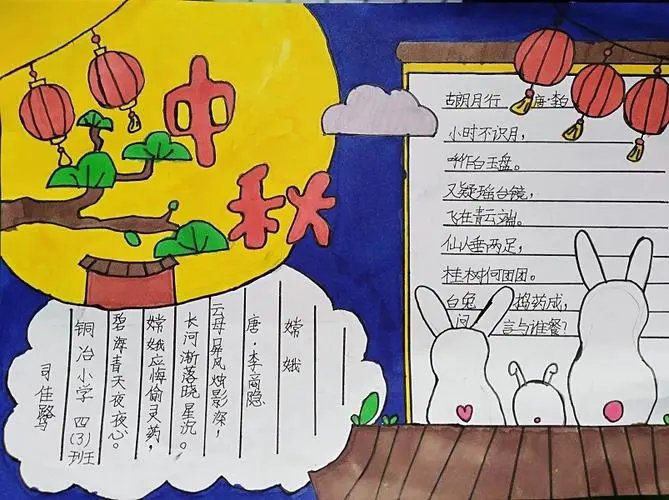 中
秋
古朗月行 唐·李白
小时不识月，
呼作白玉盘。
又疑瑶台镜，
飞在青云端。
仙人垂两足，
桂树何团团。
白兔捣药成，
问言与谁餐？
嫦娥
唐·李商隐
云母屏风烛影深，
长河渐落晓星沉。
嫦娥应悔偷灵药，
碧海青天夜夜心。
铜冶小学 四（3）班
司佳